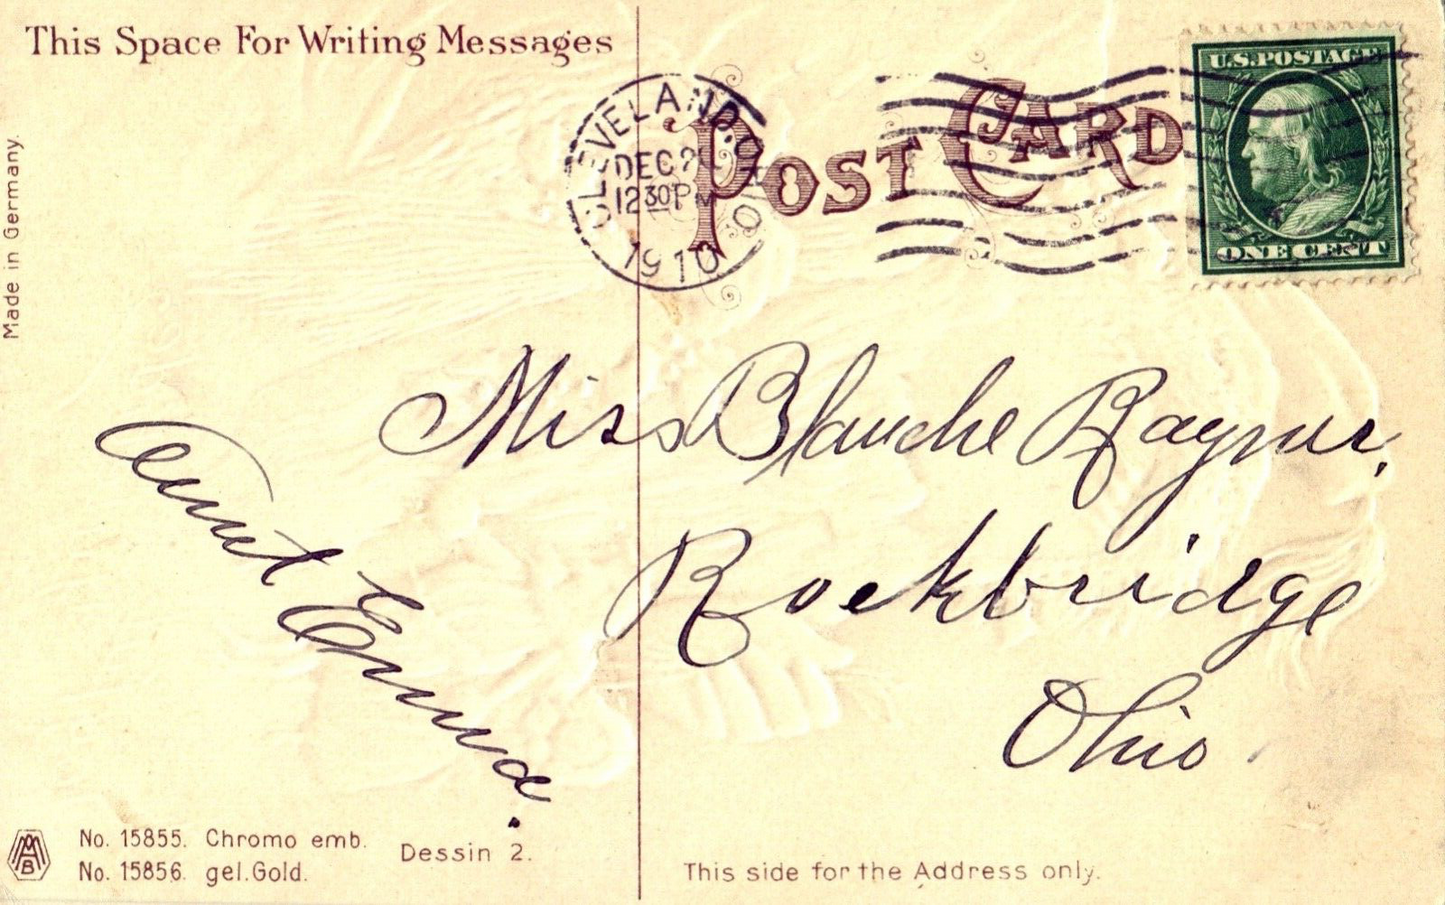 This Space For Writing Messages
Made in Germany.
CLEVELAND, OHIO
DEC 2
12 30 P M
1910
POST CARD
U.S. POSTAGE
ONE CENT
Miss Blanche Raymer,
Rockbridge
Ohio
Aunt Emma.
MAB
No. 15855. Chromo emb.
No. 15856. gel. Gold.
Dessin 2.
This side for the Address only.